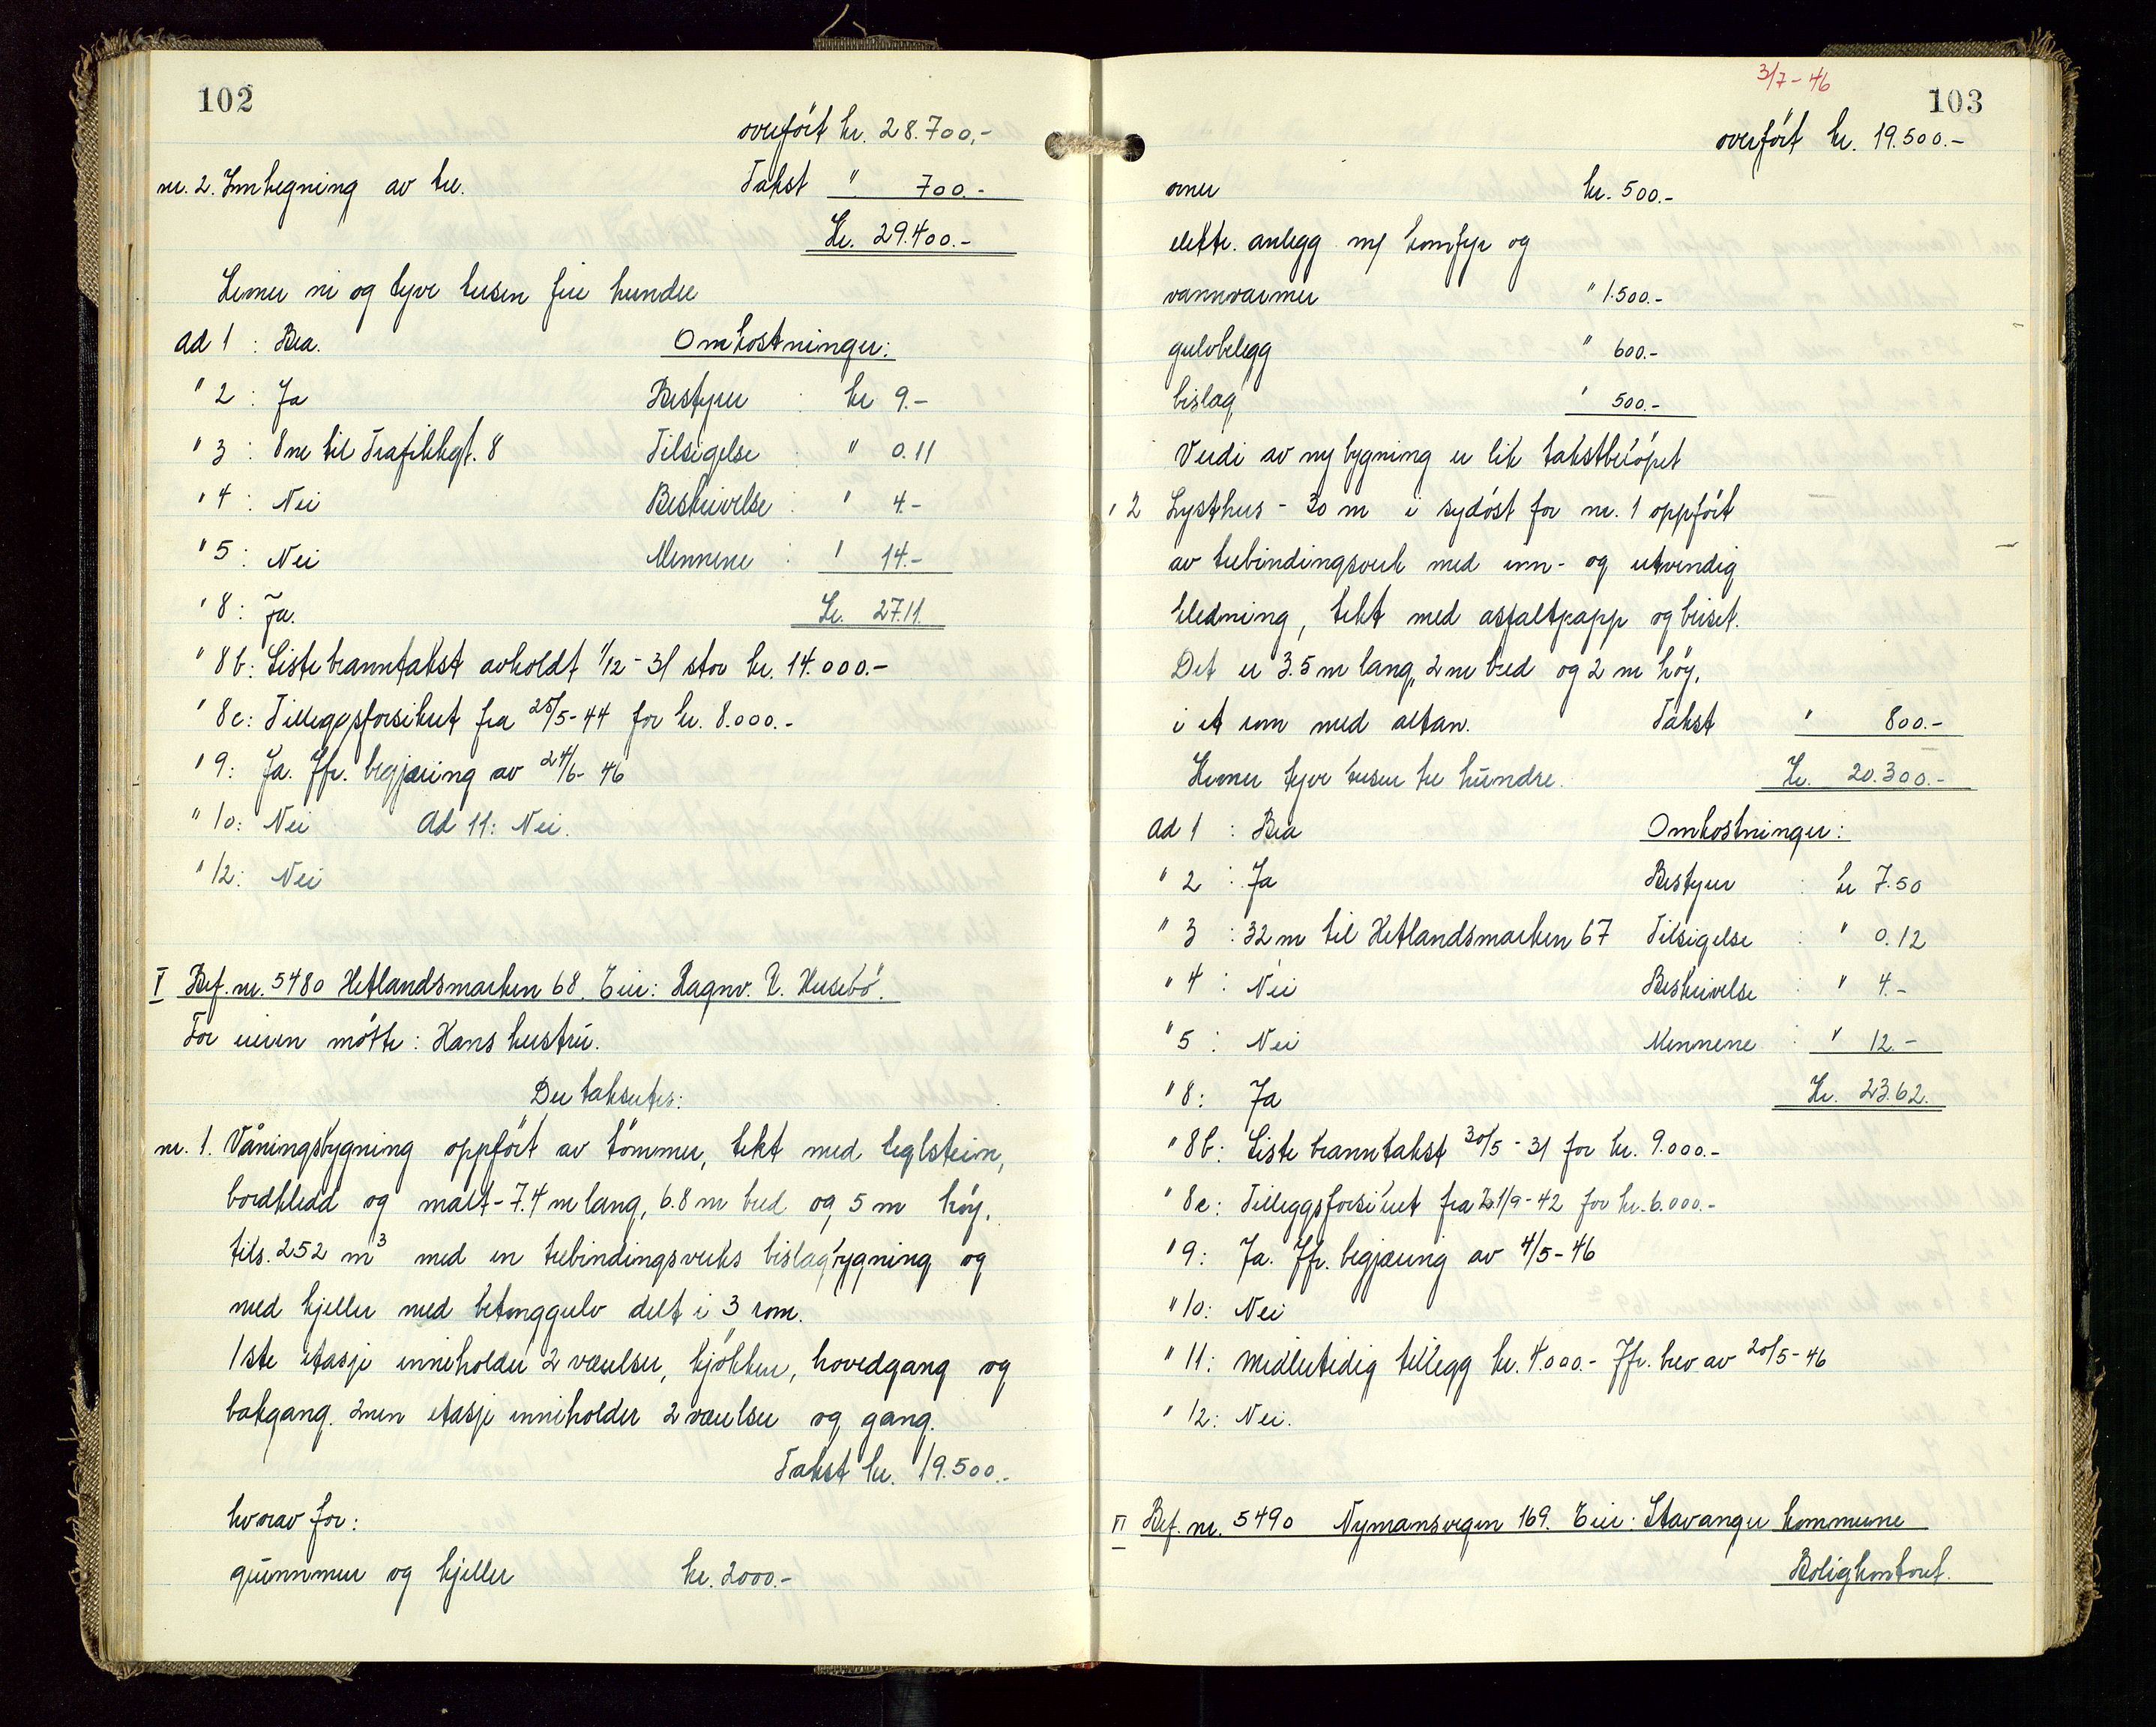 102
overfört kr. 28.700,-
nr. 2. Innhegning av tre. Takst " 700.-
Kr. 29.400.-
Kroner ni og tyve tusen fire hundre
Ad 1 : Bra. Omkostninger:
" 2 : Ja Bestyrer : kr 9.-
" 3 : 8 m til Trafikkgt. 8 Tilsigelse : " 0.11
" 4 : Nei Beskrivelse : " 4.-
" 5 : Nei Mennene : " 14.-
" 8 : Ja. Kr. 27.11.
" 8 b: Siste branntakst avholdt 1/12 - 31 stor kr. 14.000.-
" 8c: Tilleggsforsikret fra 25/5 - 44 for kr. 8.000.-
" 9: Ja. Jfr. begjæring av 24/6 - 46
" 10: Nei Ad 11: Nei.
" 12: Nei
V Bef. nr. 5480 Hetlandsmarken 68. Eier: Ragnv. V. Husebö.
For eieren mötte: Hans hustru.
Der takseres:
nr. 1. Våningsbygning oppfört av tömmer, tekt med teglstein,
bordkledd og malt - 7.4 m lang, 6.8 m bred og 5 m höy,
tils. 252 m³ med en trebindingsverks bislagbygning og
med kjeller med betonggulv delt i 3 rom.
1ste etasje inneholder 2 værelser, kjökken, hovedgang og
bakgang. 2nen etasje inneholder 2 værelser og gang.
Takst kr. 19.500.-
hvorav for:
grunnmur og kjeller kr. 2000.-
3/7 - 46
103
overfört kr. 19.500.-
ovner kr. 500.-
elektr. anlegg m/ komfyr og
vannvarmer " 1.500.-
gulvbelegg " 600.-
bislag " 500.-
Verdi av ny bygning er lik takstbelöpet
" 2 Lysthus - 30 m i sydöst for nr. 1 oppfört
av trebindingsverk med inn- og utvendig
kledning, tekt med asfaltpapp og beiset.
Det er 3.5 m lang, 2 m bred og 2 m höy,
i et rom med altan. Takst " 800.-
Kroner tyve tusen tre hundre. Kr. 20.300.-
Ad 1 : Bra Omkostninger:
" 2 : Ja Bestyrer : kr 7.50
" 3 : 32 m til Hetlandsmarken 67 Tilsigelse : " 0.12
" 4 : Nei Beskrivelse : " 4.-
" 5 : Nei Mennene : " 12.-
" 8 : Ja Kr. 23.62.
" 8b: Siste branntakst 30/5 - 31 for kr. 9.000.-
" 8c: Tilleggsforsikret fra 21/9 - 42 for kr. 6.000.-
" 9: Ja. Jfr. begjæring av 4/5 - 46
" 10: Nei
" 11: Midlertidig tillegg kr. 4.000.- Jfr. brev av 20/5 - 46
" 12: Nei.
VI Bef. nr. 5490 Nymansvegen 169. Eier: Stavanger kommune
Boligkontoret.